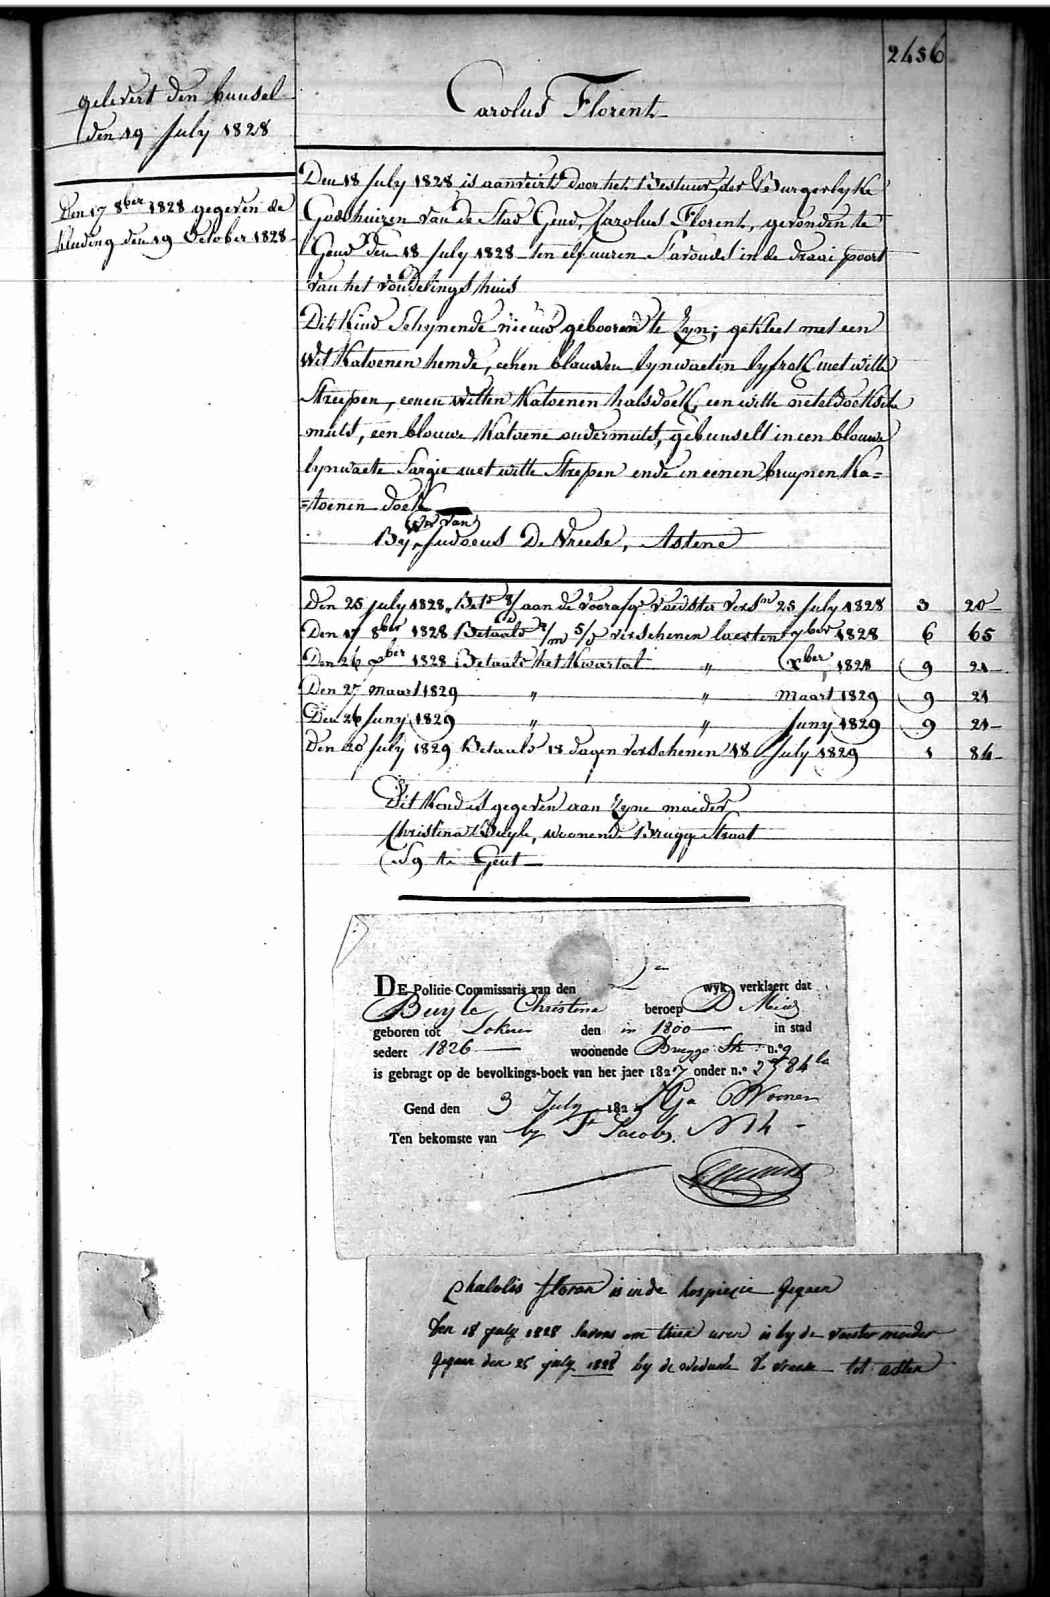 2456
gelevert den bunsel
den 19 July 1828
Den 17 8ber 1828 gegeven de
kleeding den 19 October 1828
Carolus Florent
Den 18 July 1828 is aanveirt door het Bestuur der Burgerlyke
Godshuizen van de Stad Gend, Carolus Florent, gevonden te
Gend den 18 July 1828 ten elf uuren S'avonds in de draai poort
van het vondelings huis
Dit Kind Schynende nieuw gebooren te Zyn; gekleet met een
wit Katoenen hemde, eenen blouwen lynwaeten lyfrok met witte
Streepen, eenen witten Katoenen halsdoek, een witte neteldoeksche
muts, een blouwe Katoene ondermuts, gebunselt in een blouwe
lynwaete Sargie met witte Streepen ende in eenen bruynen Ka=
=toenen doek
We van
By Judocus De Vreese, Astene
Den 25 july 1828 Bet. aan de voorafge voedster versn 25 July 1828 3 20
Den 17 8ber 1828 Betaald verschenen laesten 7ber 1828 6 65
Den 26 xber 1828 Betaald het Kwartal " xber 1828 9 21
Den 27 maart 1829 " " maart 1829 9 21
Den 26 Juny 1829 " " Juny 1829 9 21
Den 20 July 1829 Betaald 18 dagen verschenen 18 July 1829 1 84
Dit Kind is gegeven aan Zyne moeder
Christina Buyle, woonende Brugge Straat
N 9 te Gent
DE Politie-Commissaris van den 2en wyk verklaert dat
Buyle Christine beroep D Meid
geboren tot Lokeren den in 1800 in stad
sedert 1826 woonende Brugge Str: n.° 9
is gebragt op de bevolkings-boek van het jaer 1827 onder n.°
Gend den 3 July 182 Ga Woonen
Ten bekomste van by Fs Jacobs, N 14
Chalolis floran is in de hospiecie gegaen
den 18 july 1828 savons om thien uren is by de voester moeder
gegaen den 25 july 1828 by de weduwe De vreese tot asten